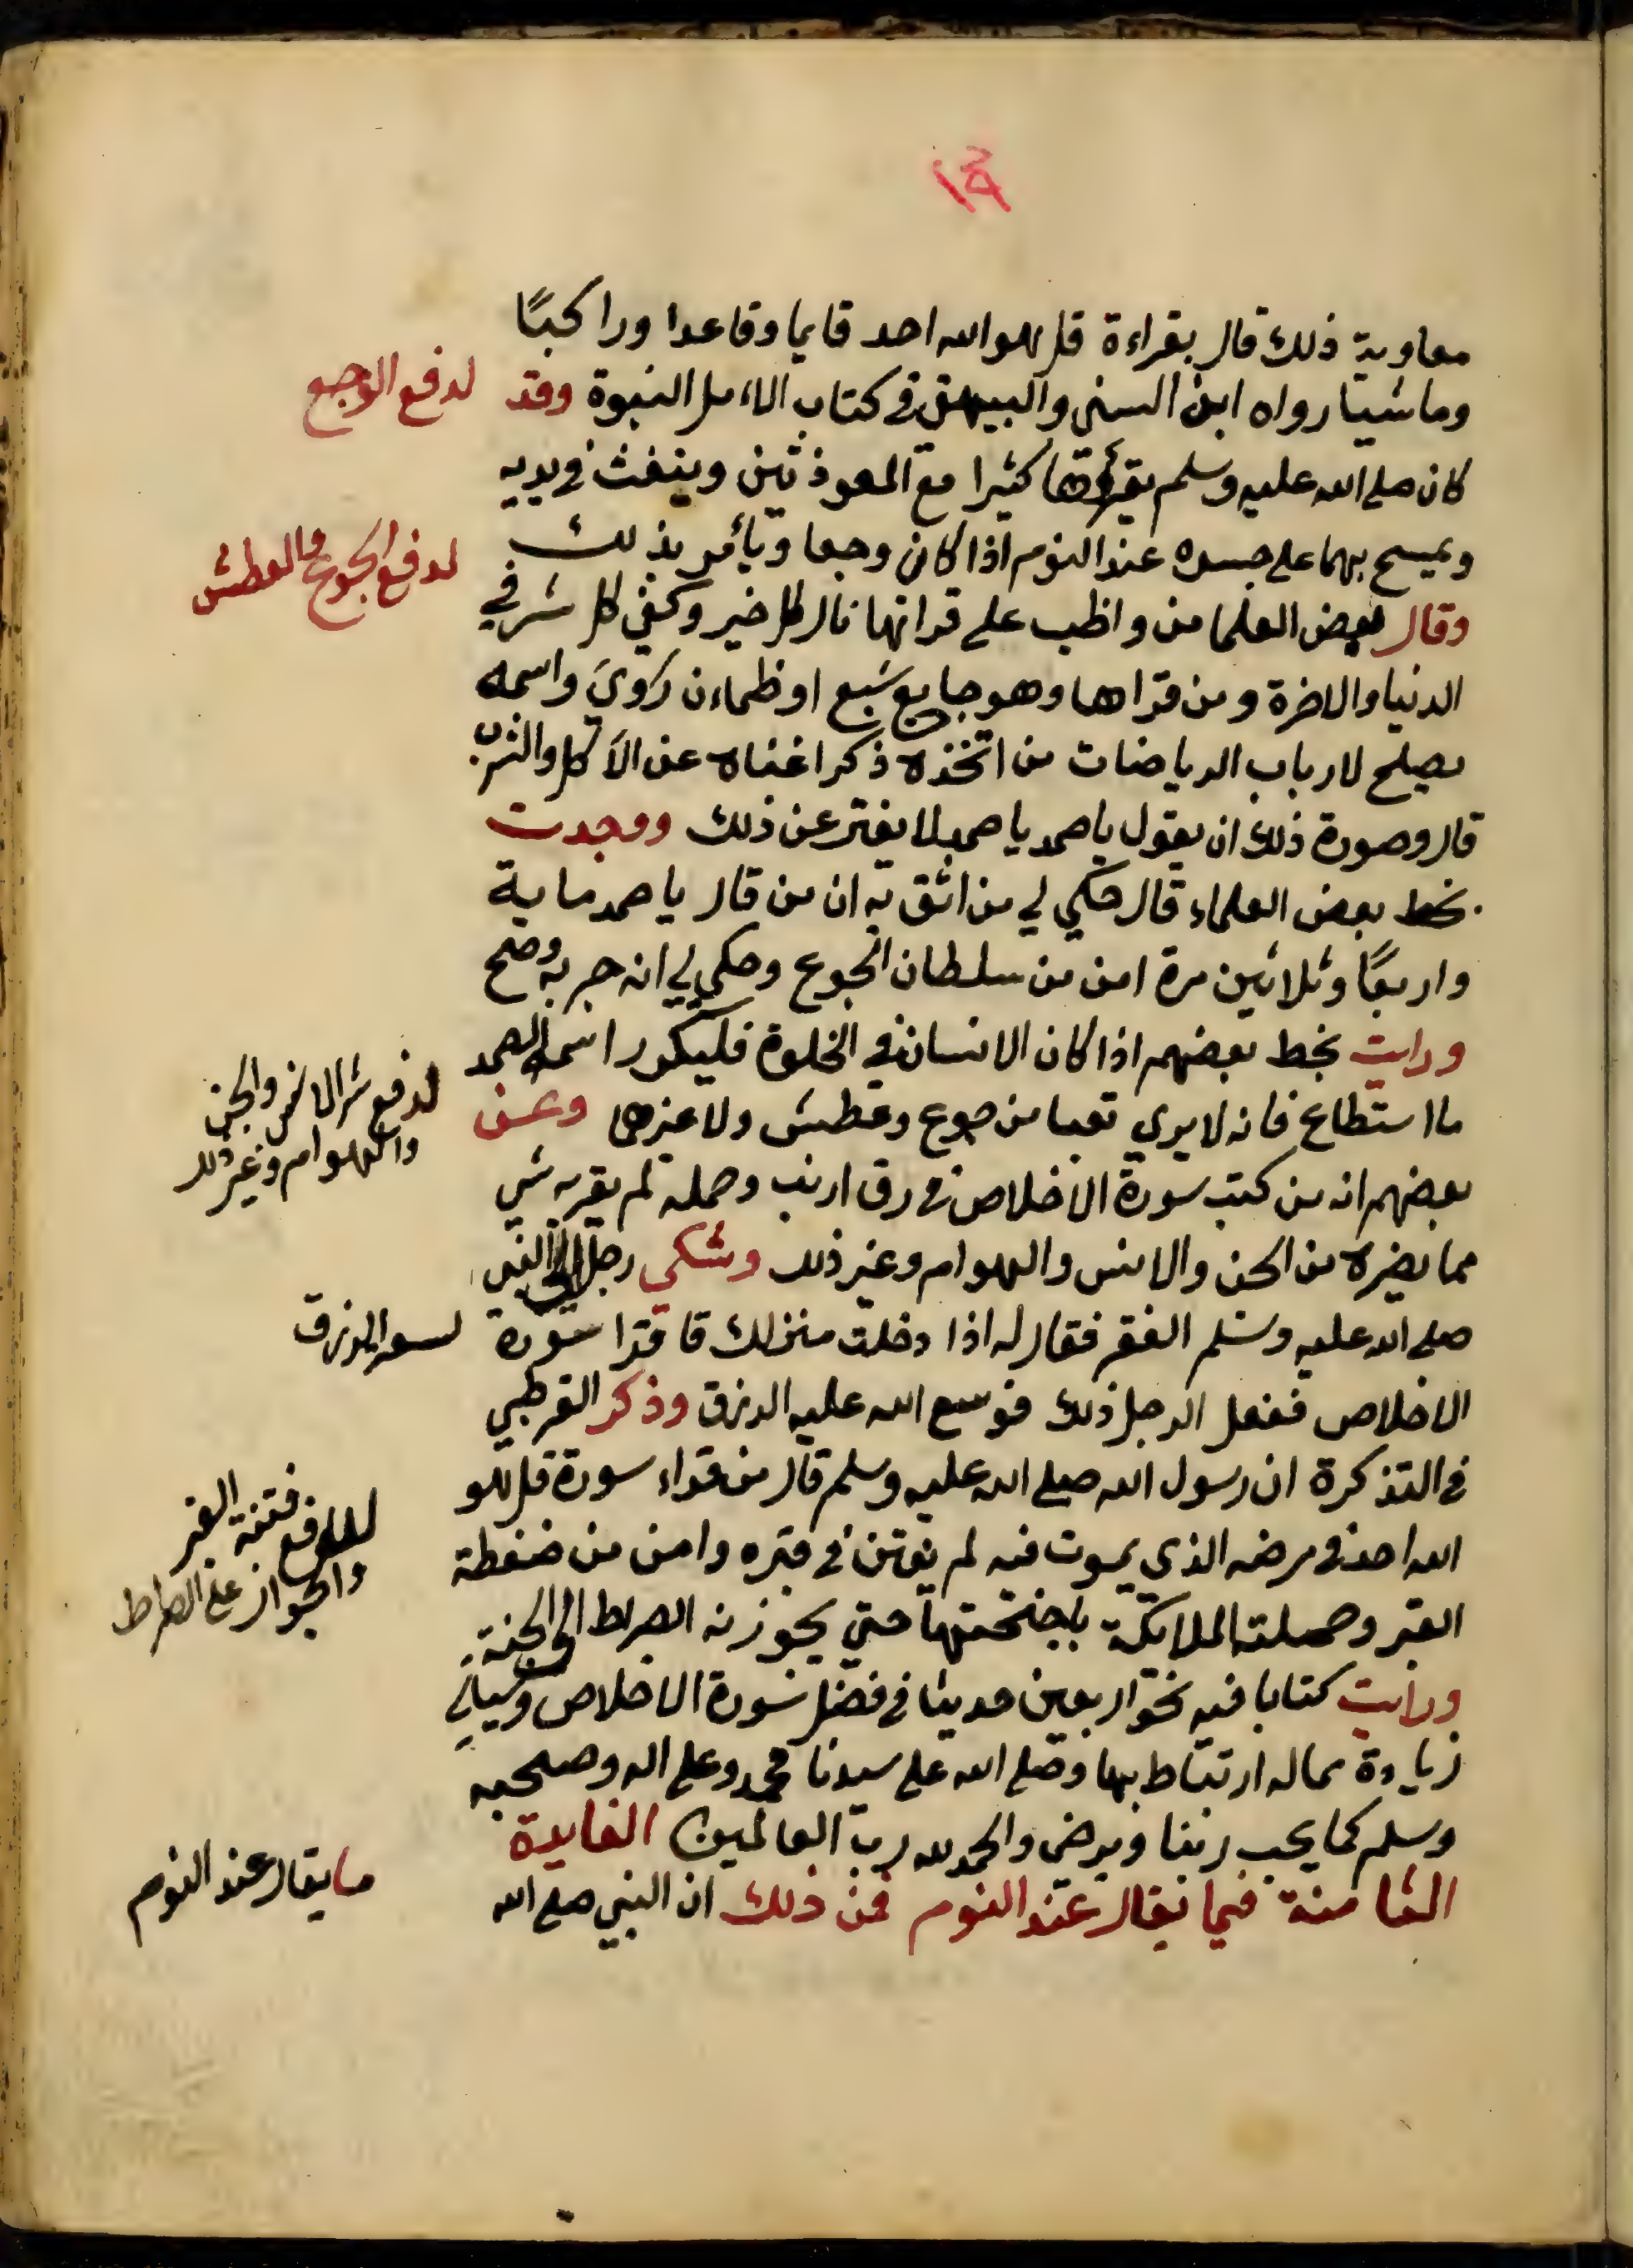 معاوية ذلك قال بقراءة قل هو الله احد قايما وقاعدا وراكبًا
وماشيا رواه ابن السني والبيهقي في كتاب الاءمل النبوة وقد
لدفع الوجع
كان صلى الله عليه وسلم يقرؤها كثيرا مع المعوذتين وينفث في يديه
ويمسح بهما على جسده عند النوم اذا كان وجعا ويأمر بذلك
لدفع الجوع والعطش
وقال بعض العلما من واظب على قراتها نال كل خير وكفي كل شر في
الدنيا والاخرة ومن قراها وهو جايع شبع او ظماءن رَوِيَ واسمه
يصلح لارباب الرياضات من اتخذه ذكرا اغناه عن الاكل والشرب
قال وصورة ذلك ان يقول يا صمد يا صمد لا يفتر عن ذلك ووجدت
بخط بعض العلماء قال حكي لي من اثق به ان من قال يا صمد ماية
واربعًا وثلاثين مرة امن من سلطان الجوع وحكي لي انه جربه وصح
ورايت بخط بعضهم اذا كان الانسان في الخلوة فليكرر اسمه الصمد
لدفع شر الانس والجن
والهوام وغير ذلك
ما استطاع فانه لا يري تعبا من جوع وعطش ولا غيرها وعن
بعضهم انه من كتب سورة الاخلاص في رق ارنب وحمله لم يقربه شي
مما يضره من الجن والانس والهوام وغير ذلك وشكى رجل الى النبي
صلى الله عليه وسلم الفقر فقال له اذا دخلت منزلك فاقرا سورة
لسعة الرزق
الاخلاص ففعل الرجل ذلك فوسع الله عليه الرزق وذكر القرطبي
في التذكرة ان رسول الله صلى الله عليه وسلم قال من قراء سورة قل هو
لدفع فتنة القبر
والجواز على الصراط
الله احد في مرضه الذي يموت فيه لم يفتن في قبره وامن من ضغطة
القبر وحملته الملايكة باجنحتها حتي يجوزنه الصراط الى الجنة
ورايت كتابا فيه نحو اربعين حديثا في فضل سورة الاخلاص وسياتي
زيادة مما له ارتباط بها وصلى الله على سيدنا محمد وعلى اله وصحبه
وسلم كما يحب ربنا ويرضي والحمد لله رب العالمين الفايدة
الثامنة فيما يقال عند النوم فمن ذلك ان النبي صلى الله
ما يقال عند النوم